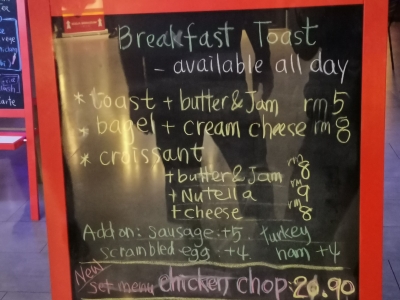 Breakfast Toast
- available all day
* toast + butter & Jam rm 5
* bagel + cream cheese rm 8
* croissant
+ butter & Jam rm 8
+ Nutella rm 9
+ cheese rm 8
Add on: sausage +5 turkey
scrambled egg +4 ham +4
New
set menu chicken chop: 20.90